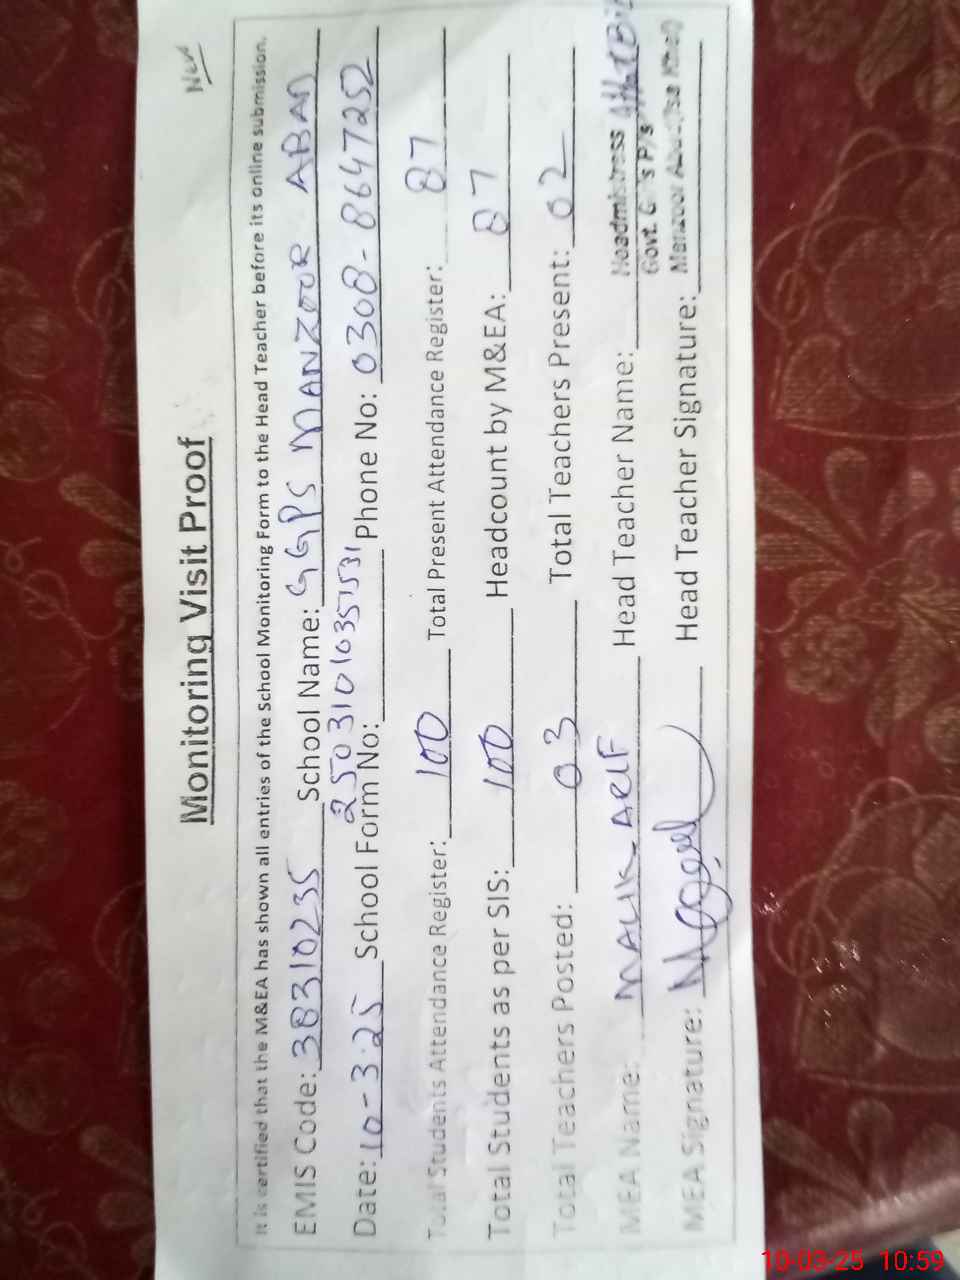 New
Monitoring Visit Proof
It is certified that the M&EA has shown all entries of the School Monitoring Form to the Head Teacher before its online submission.
EMIS Code: 38310235 School Name: GGPS MANZOOR ABAD
Date: 10-3-25 School Form No: 25031010351531 Phone No: 0308-8647252
Total Students Attendance Register: 100 Total Present Attendance Register: 87
Total Students as per SIS: 100 Headcount by M&EA: 87
Total Teachers Posted: 03 Total Teachers Present: 02
MEA Name: MALIK ARIF Head Teacher Name: Headmistress
Govt. G P/s
MEA Signature: Head Teacher Signature: Manzoor
10-03-25 10:59